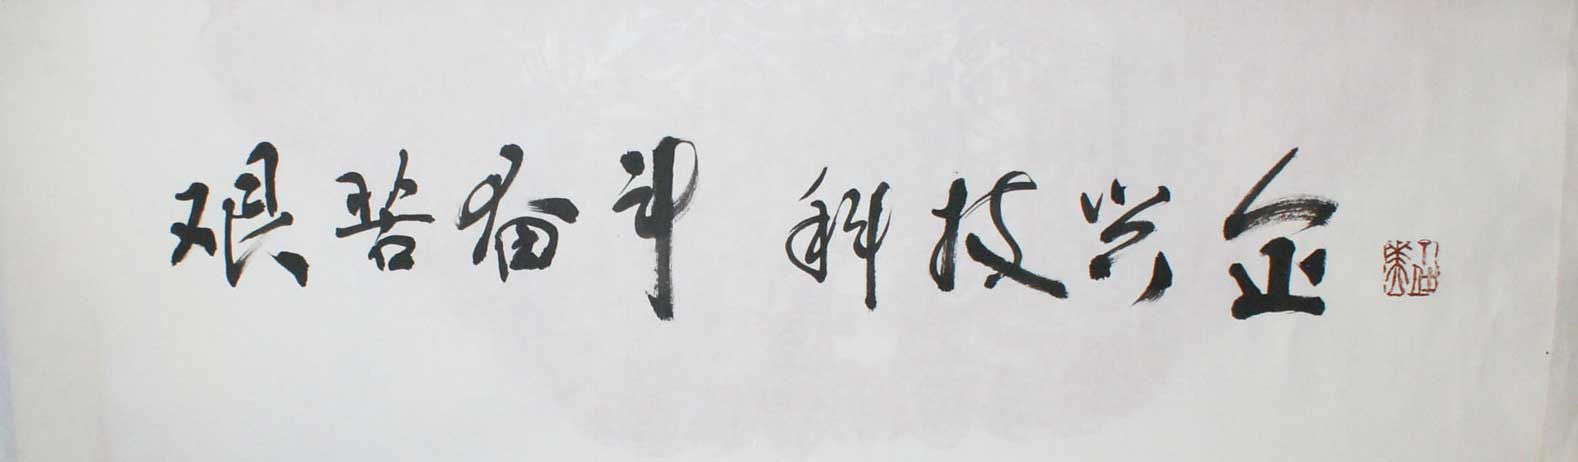 艰苦奋斗 科技兴企